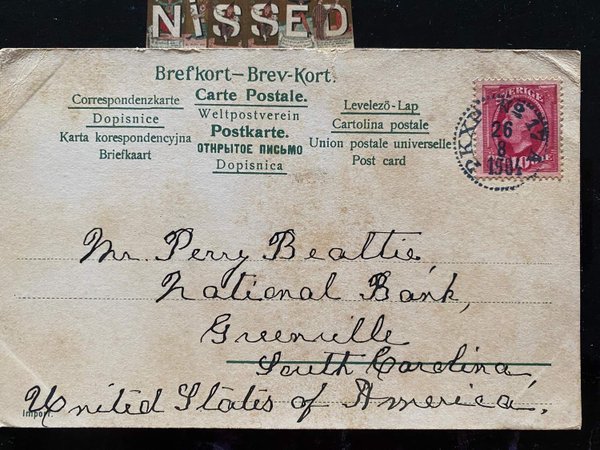 NISSED
Brefkort – Brev-Kort.
Correspondenzkarte
Carte Postale.
Levelező-Lap
Dopisnice
Weltpostverein
Cartolina postale
Karta korespondencyjna
Postkarte.
Union postale universelle
Briefkaart
ОТКРЫТОЕ ПИСЬМО
Post card
Dopisnica
SVERIGE
PKXP
26
8
1904
Mr. Perry Beattie
National Bank,
Greenville
South Carolina
United States of America.
Import.